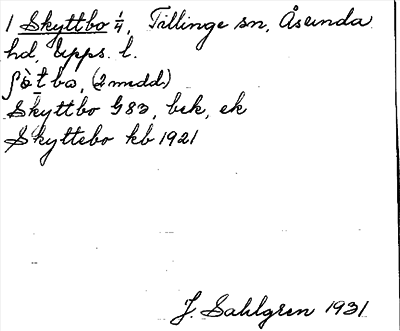 1 Skyttbo ¼, Tillinge sn, Åsunda
hd, Upps. l.
ʃòt bω, (2 medd.)
Skyttbo G83, bek, ek
Skyttebo kb 1921
J. Sahlgren 1931